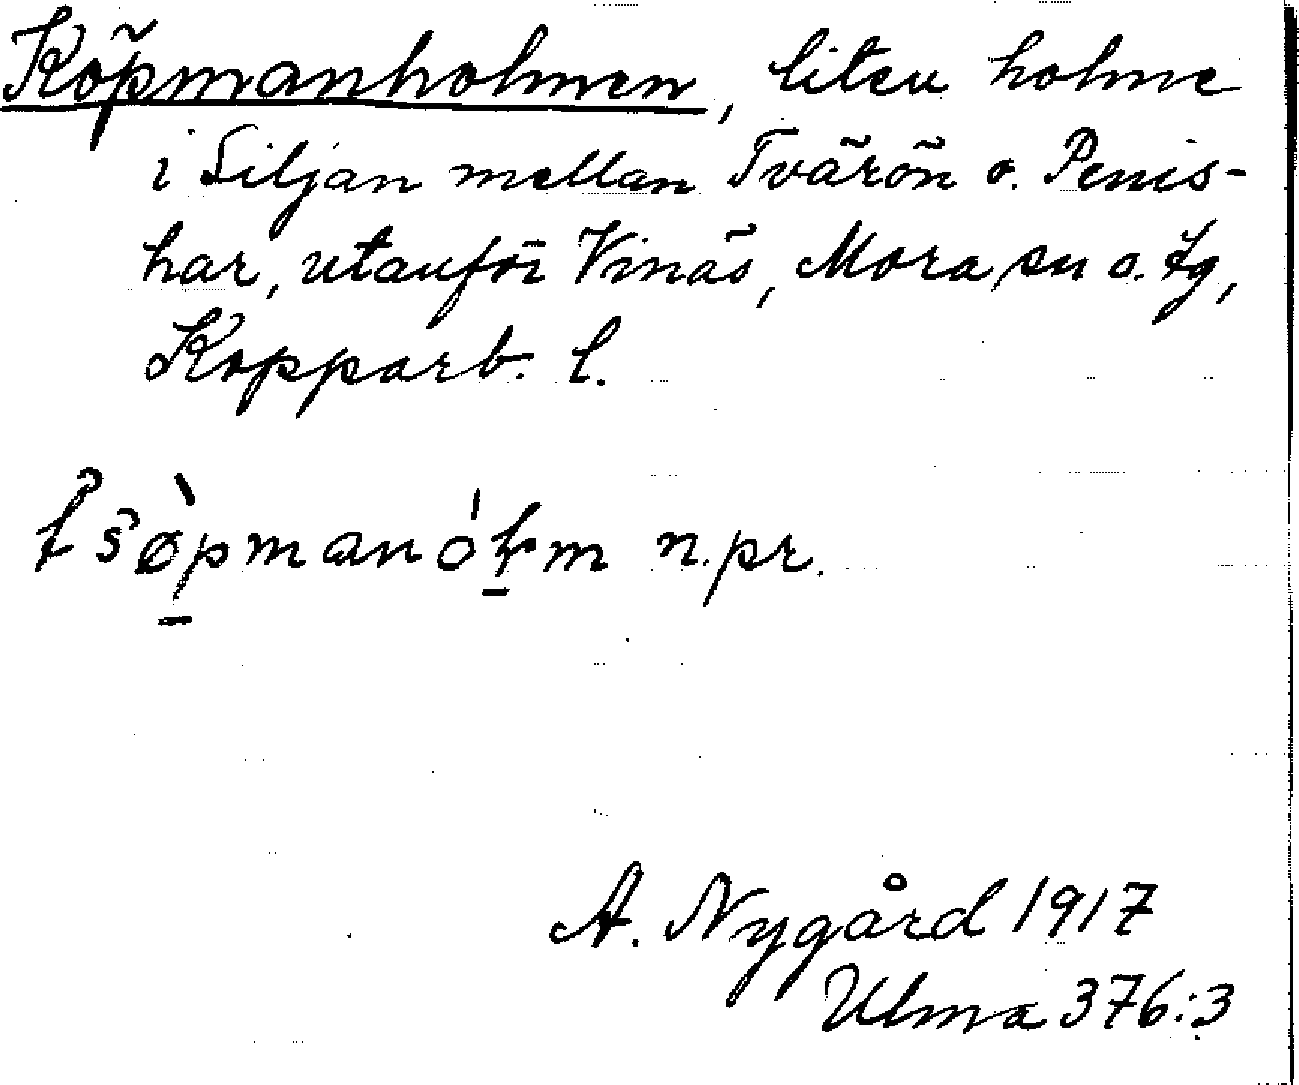 Köpmanholmen, liten holme
i Siljan mellan Tvärön o. Penis-
har, utanför Vinäs, Mora sn o. tg,
Kopparb. l.
n.pr.
A. Nygård 1917
Ulma 376:3